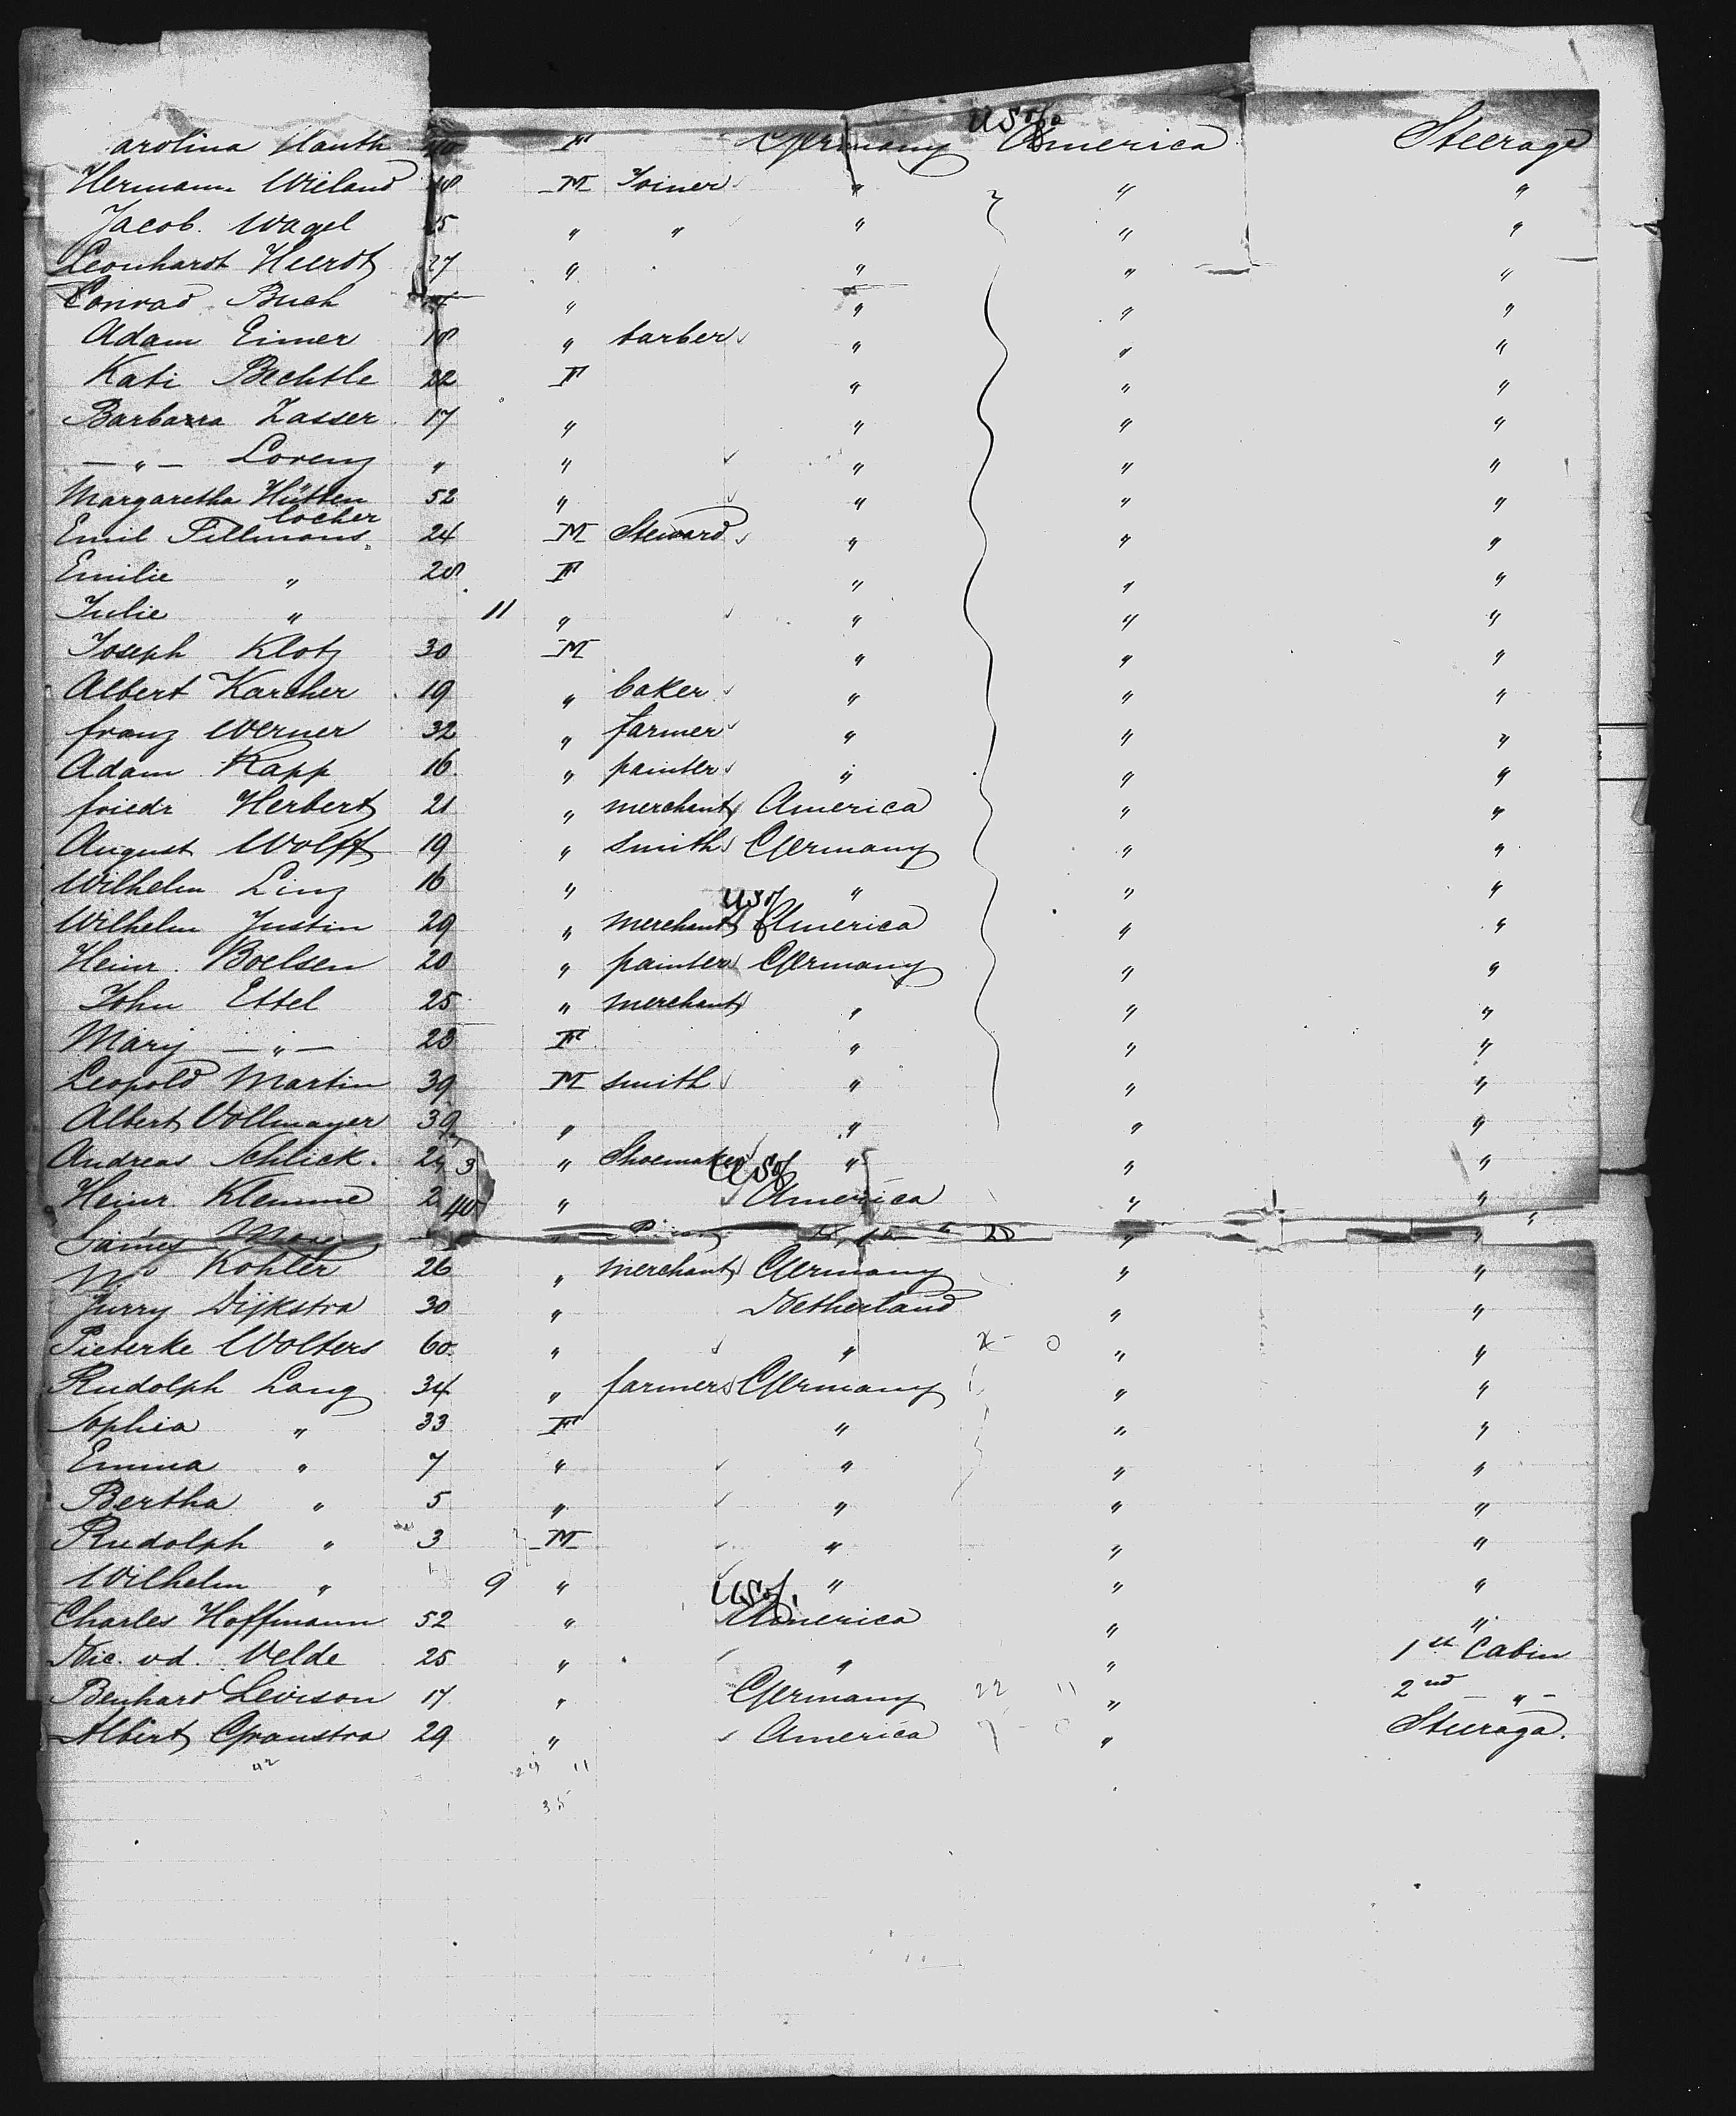 arolina Hauth 40 F Germany US of America Steerage
Hermann Wieland 18 M Joiner " " "
Jacob. Wagel 25 " " " " "
Leonhardt Heerdt 27 " " " "
Conrad Buch " " " "
Adam Eimer 18 " barber " " "
Kati Bechtle 22 F " " "
Barbarra Zasser 17 " " " "
— " — Lorenz " " " " "
Margaretha Hütten 52 " " " "
locher
Emil Tillmons 24 M Steward " " "
Emilie " 28 F " " "
Julie " 11 " " " "
Joseph Klotz 30 M " " "
Albert Karcher 19 " baker " " "
franz Werner 32 " farmer " " "
Adam Kapp 16 " painter " " "
friedr Herbert 21 " merchant America " "
August Wolff 19 " smith Germany " "
Wilhelm Linz 16 " " " "
Wilhelm Justin 29 " merchant US of America " "
Heinr. Boelsen 20 " painter Germany " "
John Ettel 25 " merchant " " "
Mary — " — 23 F " " "
Leopold Martin 39 M smith " " "
Albert Vollmayer 39 " " " "
Andreas Schlick. 24 3 " Shoemaker " " "
Heinr. Klemme 2 40 " US of America " "
James " "
Kohler 26 " merchant Germany " "
Jurry Dijkstra 30 " Netherland " "
Pieterke Wolters 60 " " x - 0 " "
Rudolph Lang 34 " farmer Germany " "
Sophia " 33 F " " "
Emma " 7 " " " "
Bertha " 5 " " " "
Rudolph " 3 M " " "
Wilhelm " 9 " " " "
Charles Hoffmann 52 " US of America " "
Nic. vd. Velde 25 " " " 1st Cabin
Benhard Levison 17 " Germany 22 11 " 2nd — " —
Albert Graustra 29 " America " Steeraga.
42 24 11
35